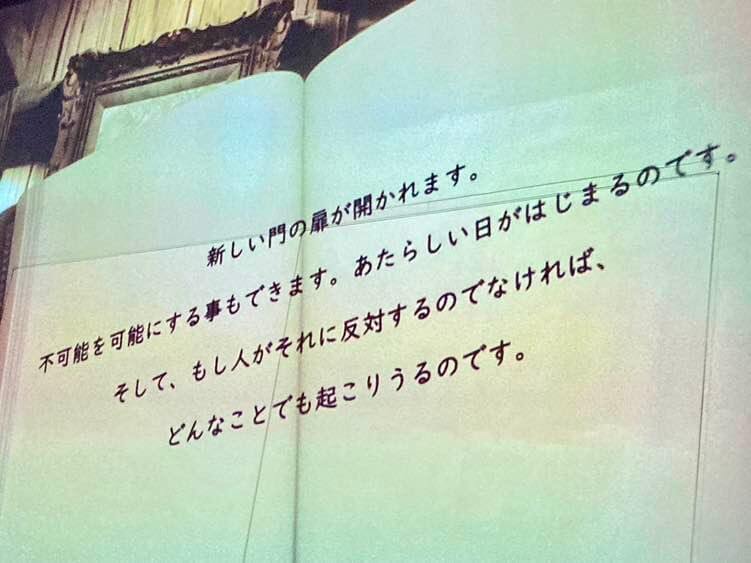 新しい門の扉が開かれます。
不可能を可能にする事もできます。あたらしい日がはじまるのです。
そして、もし人がそれに反対するのでなければ、
どんなことでも起こりうるのです。